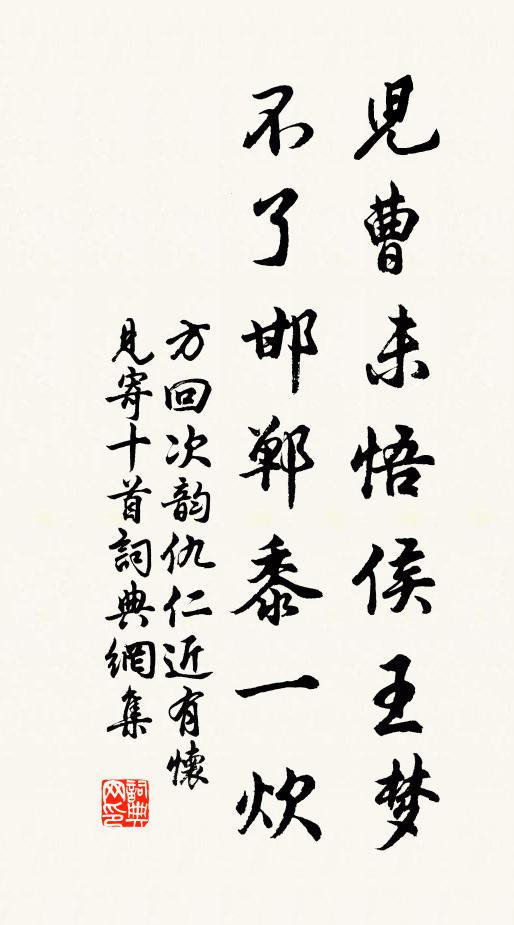 兒曹未悟侯王梦
不了邯郸黍一炊
方回次韵仇仁近有懷
見寄十首詞典網集
詞典
网印